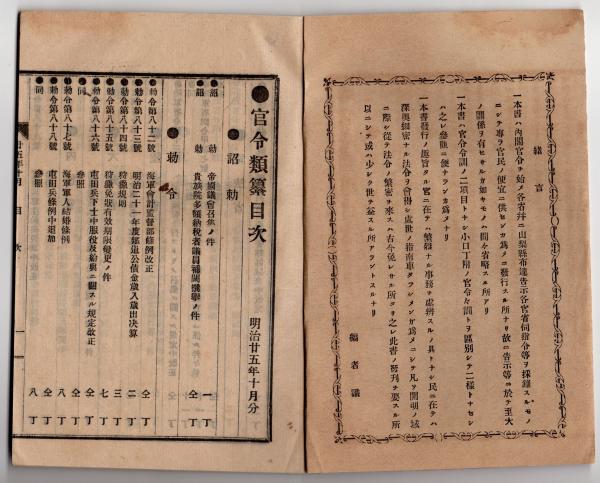 緒言
一本書ハ内閣官令ヲ始メ各省幷ニ山梨縣布達告示各官省伺指令等ヲ採錄スルモノ
ニシテ專ラ官民ノ便宜ニ供センガ爲メニ發行スル所ナリ故ニ告示等ニ於テ至大
ノ關係ヲ有セサルカ如キモノハ間々省略スル所アリ
一本書ハ官令令訓ノ二項目トナシ小口丁附ノ官令々訓トヲ區別シテ二樣トナセシ
ハ之レ參觀ニ便ナラシガ爲メナリ
一本書發行ノ趣旨タル官ニ在テハ繁雜ナル事務ヲ處辨スルノ具トナシ民ニ在テハ
深奧細密ナル法令ヲ會得シ處世ノ指南車タラシメンガ爲メニシテ凡ソ開明ノ域
ニ際シ從テ法令ノ繁密ヲ來スハ古今免レセル所ヨリ之レ此書ノ發刊ヲ要スル所
以ニシテ或ハ少シク世ヲ益スル所アラントスルナリ
編者識
官令類纂目次
明治廿五年十月分
詔勅
詔勅 帝國議會召集ノ件 一丁
詔勅 貴族院多額納稅者議員補闕選擧ノ件 仝丁
勅令
勅令第八十二號 海軍會計監督部條例改正 仝丁
勅令第八十三號 明治二十一年度鐵道公債金歲入歲出决算 二丁
勅令第八十四號 狩獵規則 三丁
勅令第八十五號 狩獵免狀有效期限變更ノ件 七丁
勅令第八十六號 屯田兵下士中服役及給與ニ關スル規定改正 仝丁
參照 仝丁
勅令第八十七號 海軍軍人結婚條例 八丁
同第八十八號 屯田兵條例中追加 仝丁
同 參照 八丁
廿五年十月 目次 一